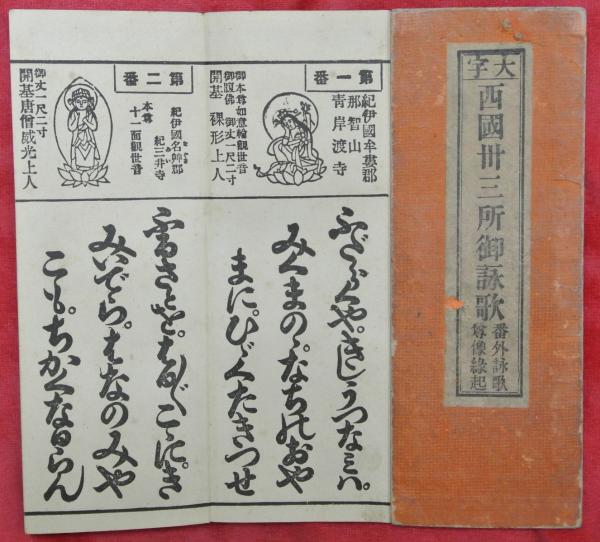 大字
西國卅三所御詠歌
番外詠歌
尊像緣起
第一番
紀伊國牟婁郡
那智山
青岸渡寺
御本尊如意輪觀世音
御腹佛 御丈一尺二寸
開基 裸形上人
ふだらくや。きしうつなミハ。
みくまのゝなちのおや
まに。ひゞくたきつせ
第二番
紀伊國名艸郡
紀三井寺
本尊
十一面觀世音
御丈一尺二寸
開基唐僧威光上人
ふるさとを。はる〲こゝに。き
みいでら。はなのみや
こも。ちかくなるらん